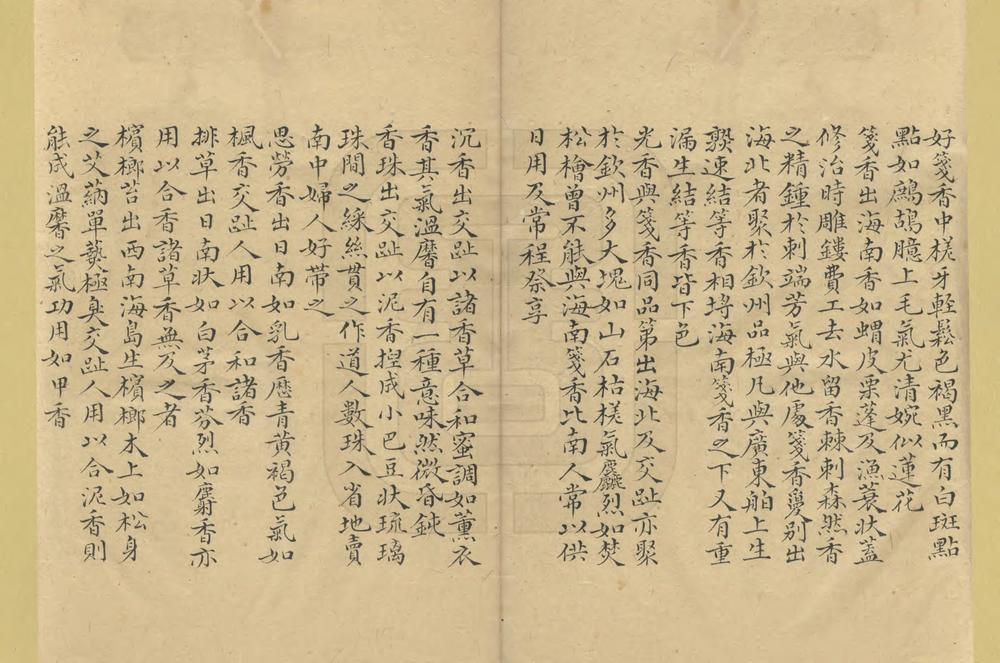 好箋香中槎牙輕鬆色褐黑而有白斑點
點如鷓鴣臆上毛氣尤清婉似蓮花
箋香出海南香如蝟皮栗蓬及漁蓑狀蓋
修治時雕鏤費工去水留香棘刺森然香
之精鍾於刺端芳氣與他處箋香夐別出
海北者聚於欽州品極凡與廣東舶上生
熟速結等香相埒海南箋香之下又有重
漏生結等香皆下色
光香與箋香同品第出海北及交趾亦聚
於欽州多大塊如山石枯槎氣麤烈如焚
松檜曾不能與海南箋香比南人常以供
日用及常程祭享
沉香出交趾以諸香草合和蜜調如薰衣
香其氣溫麐自有一種意味然微昏鈍
香珠出交趾以泥香揑成小巴豆狀琉璃
珠間之綵絲貫之作道人數珠入省地賣
南中婦人好帶之
思勞香出日南如乳香歷青黃褐色氣如
楓香交趾人用以合和諸香
排草出日南狀如白茅香芬烈如麝香亦
用以合香諸草香無及之者
檳榔苔出西南海島生檳榔木上如松身
之艾蒳單爇極臭交趾人用以合泥香則
能成溫麐之氣功用如甲香